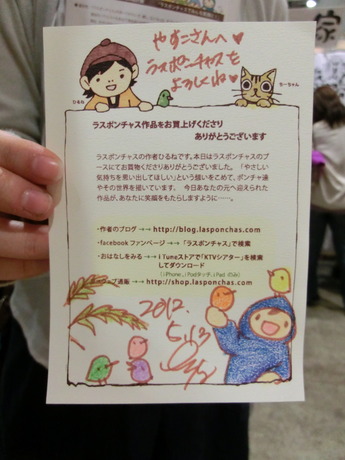 やすこさんへ♥
ラスポンチャスを
よろしくね♥
ひるね
ちーちゃん
ラスポンチャス作品をお買上げくださり
ありがとうございます
ラスポンチャスの作者ひるねです。本日はラスポンチャスのブー
スにてお買物くださりありがとうございました。「やさしい
気持ちを思い出してほしい」という願いをこめて、ポンチャ達
やその世界を描いています。 今日あなたの元へ迎えられた
作品が、あなたに笑顔をもたらしますように──。
・作者のブログ →→ http://blog.lasponchas.com
・facebook ファンページ →→「ラスポンチャス」で検索
・おはなしをみる →→ i Tuneストアで「KTVシアター」を検索
してダウンロード
(iPhone, iPodタッチ, iPad のみ)
ブ通販 →→ http://shop.lasponchas.com
2012.
5.13